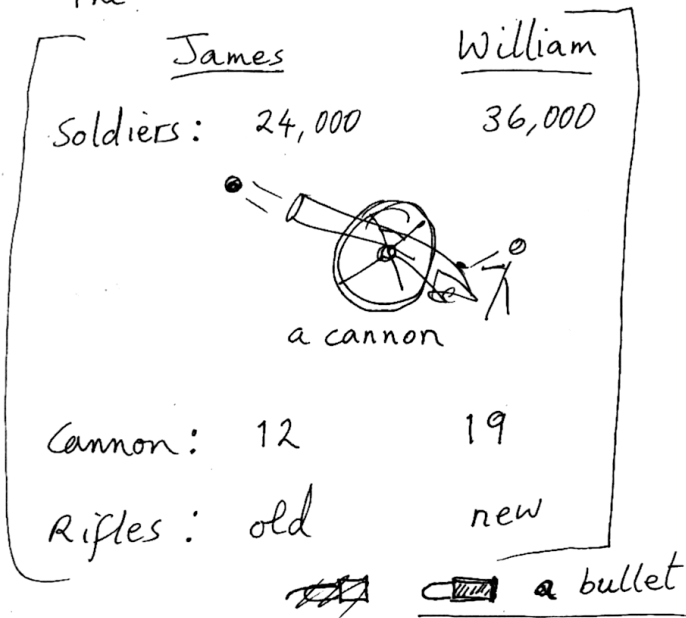 The
James William
Soldiers: 24,000 36,000
a cannon
Cannon: 12 19
Rifles: old new
a bullet